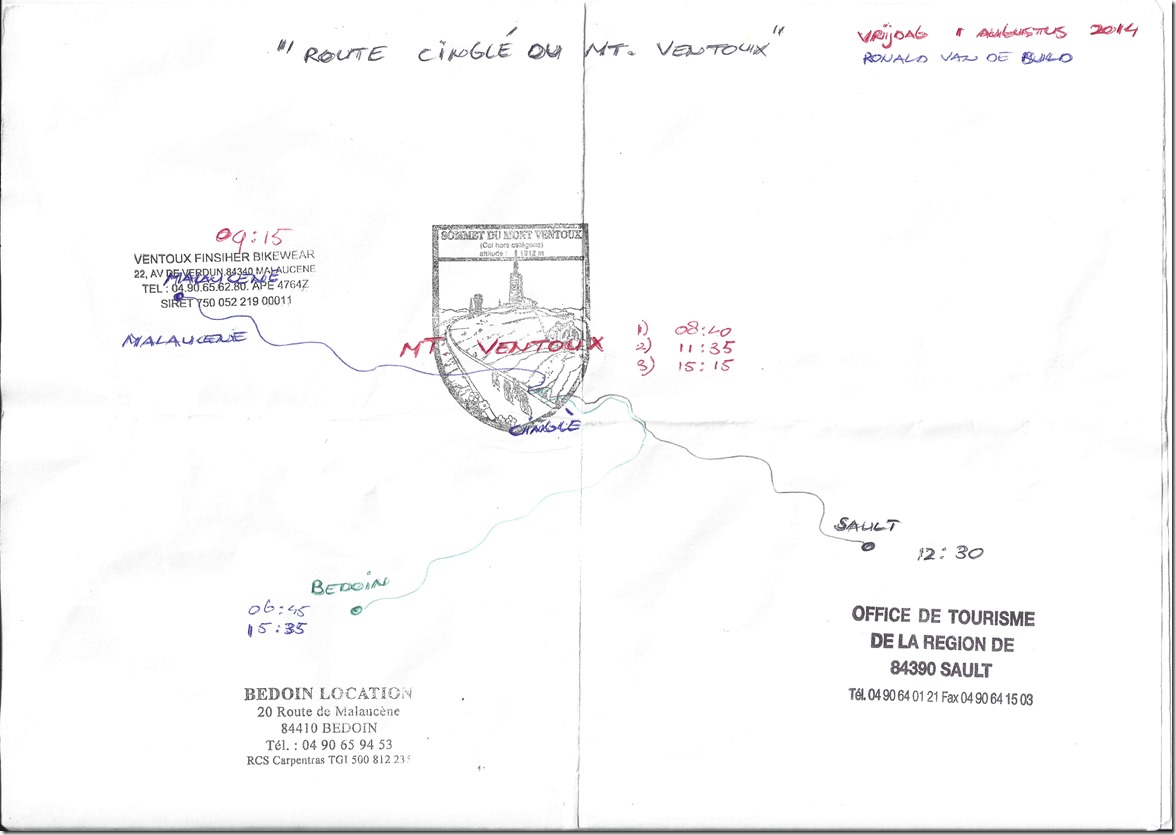 "ROUTE CINGLÉ DU MT. VENTOUX"
VRIJDAG 1 AUGUSTUS 2014
RONALD VAN DE BUILD
09:15
VENTOUX FINSIHER BIKEWEAR
22, AV DE VERDUN 84340 MALAUCENE
MALAUCENE
TEL : 04.90.65.62.80. APE 4764Z
SIRET 750 052 219 00011
MALAUCENE
SOMMET DU MONT VENTOUX
(Col hors catégorie)
altitude : 1912 m
MT. VENTOUX
1) 08:40
2) 11:35
3) 15:15
CINGLÉ
SAULT
12:30
BEDOIN
06:45
15:35
OFFICE DE TOURISME
DE LA REGION DE
84390 SAULT
Tél. 04 90 64 01 21 Fax 04 90 64 15 03
BEDOIN LOCATION
20 Route de Malaucène
84410 BEDOIN
Tél. : 04 90 65 94 53
RCS Carpentras TGI 500 812 235